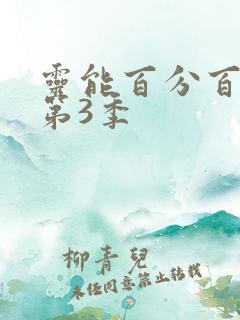 靈能百分百
第3季
柳青兒
未经同意禁止转载